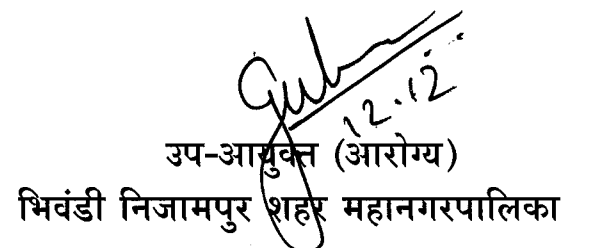 12.12
उप-आयुक्त (आरोग्य)
भिवंडी निजामपुर शहर महानगरपालिका